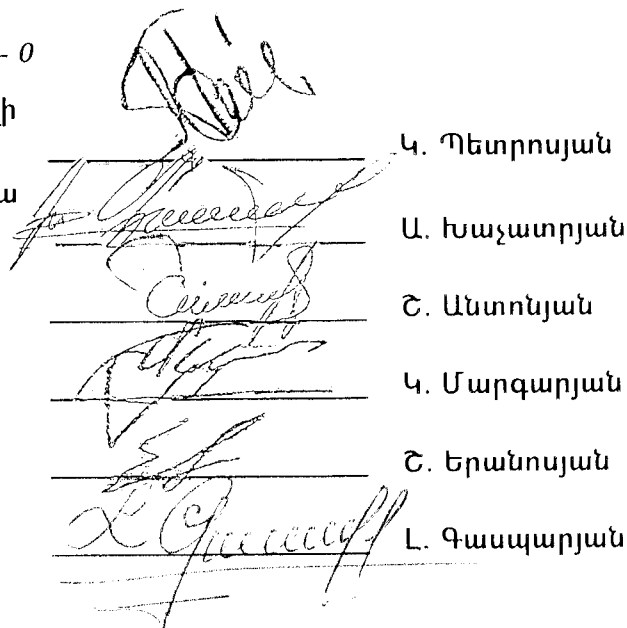 - 0
ի
Կ. Պետրոսյան
ա
Ա. Խաչատրյան
Շ. Անտոնյան
Կ. Մարգարյան
Շ. Երանոսյան
Լ. Գասպարյան